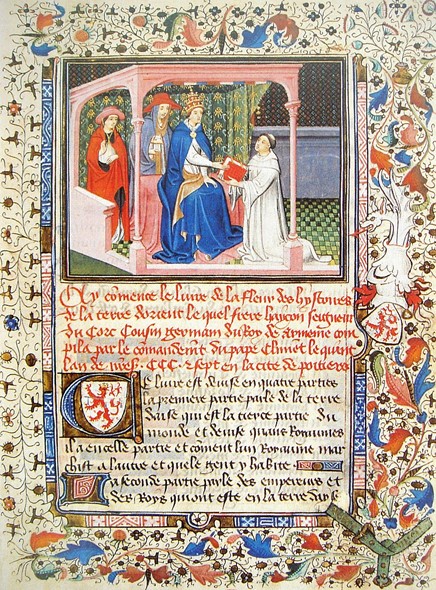 Cy cōmence le liure de la fleur des hystoires
de la terre dorient le quel frere hayton seigneur
du Corc Cousin germain du Roy de armenie com
pila par le comandemēt du pape Climēt le quint
lan de mess CCC 2 sept en la cite de poitiers
Ce liure est diuise en quatre parties
la premiere partie parle de la terre
daise qui est la tierce partie du
monde et deuise quans Royaumes
il a en celle partie et cōment lun Royaume mar
chist a lautre et quele gent y habite
La seconde partie parle des empereurs et
des Roys qui ont este en la terre dayse